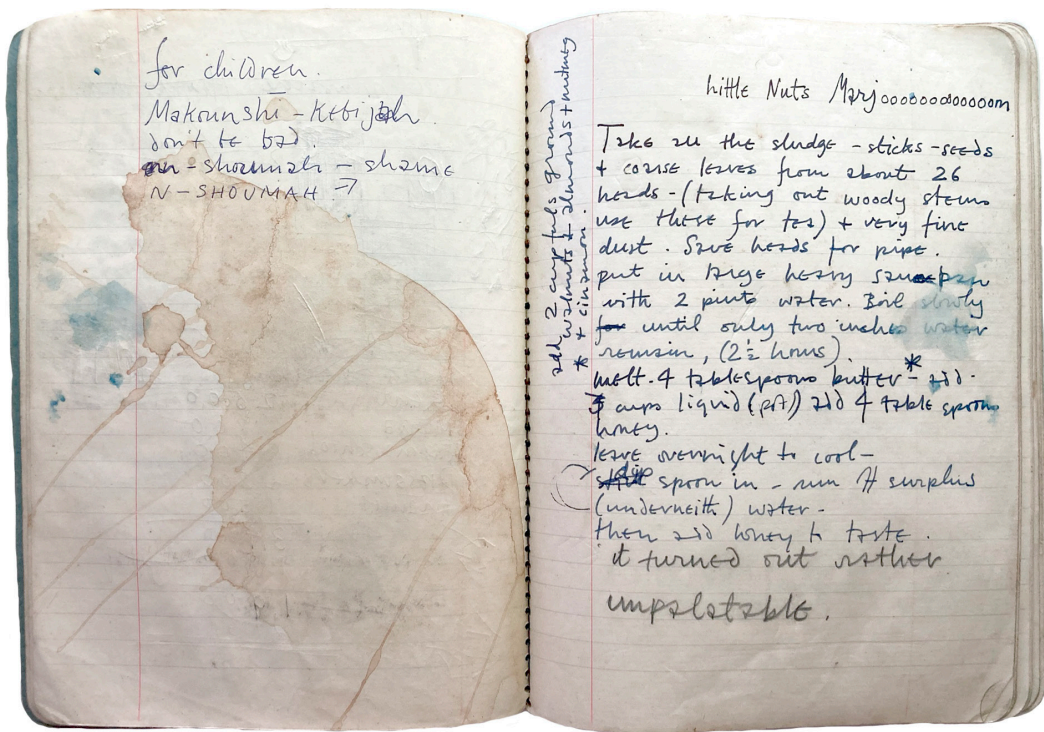 for children.
Makounshi - Kebijah.
don't be bad.
n - shoumah - shame
N - SHOUMAH →
little Nuts Marjoooooooooooom
Take all the sludge - sticks - seeds
+ coarse leaves from about 26
heads - (taking out woody stems
use these for tea) + very fine
dust. Save heads for pipe.
put in large heavy saucepan
with 2 pints water. Boil slowly
for until only two inches water
remain, (2½ hours).
melt. 4 tablespoons butter * - add.
5 cups liquid (pot) add 4 table spoons
honey.
leave overnight to cool -
slip spoon in - run off surplus
(underneith) water -
then add honey to taste.
it turned out rather
unpalatable.
add 2 cupfuls ground
walnuts + almonds + nutmeg
* + cinamon.